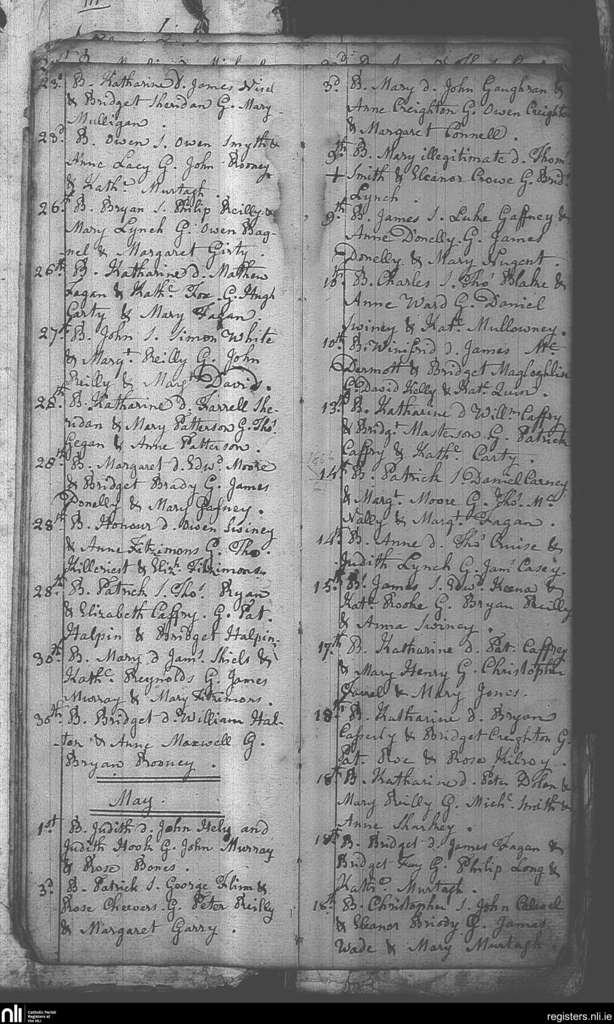 23d B. Katharine d. James
& Bridget Sheridan G. Mary
Mulligan
23d B. Owen S. Owen Smyth &
Anne Lacy G. John Rooney
& Kathe. Murtagh
26th B. Bryan S. Philip Reilly &
Mary Lynch G. Owen Bag-
nel & Margaret Girty
26th B. Katharine d. Mathew
Fagan & Kathe. Fox G. Hugh
Carty & Mary Fagan.
27th B. John S. Simon White
& Margt. Reilly G. John
Reilly & Margt. David.
28th B. Katharine d. Farrell She-
ridan & Mary Patterson G. Thos.
Cegan & Anne Patterson.
28th B. Margaret d. Edwd. Moore
& Bridget Brady G. James
Donelly & Mary Gafney.
28th B. Honour d. Owen Swiney
& Anne Fitzimons G. Thos.
& Eliz. Fitzimons.
28th B. Patrick S. Thos. Bryan
& Elizabeth Caffry. G. Pat.
Halpin & Bridget Halpin.
30th B. Mary d Jams. Shiels &
Kathe. Reynolds G. James
Murray & Mary Fitzimons.
30th B. Bridget d. William Hal-
ton & Anne Maxwell G.
Bryan Rooney.
May.
1st B. Judith d. John Hely and
Judith Hook G. John Murray
& Rose Bones.
3d B. Patrick S. George Flinn &
Rose Cheevers G. Peter Reilly
& Margaret Garry.
3d B. Mary d. John Gaughran &
Anne Creighton G. Owen Creighton
& Margaret Connell.
9th B. Mary illegitimate d. Thoms.
+ Smith & Eleanor Crowe G. Bridt.
Lynch.
9th B. James S. Luke Gaffney &
Anne Donelly G. James
Donelly & Mary Nugent.
10th B. Charles S. Thos. Blake &
Anne Ward G. Daniel
Swiney & Kate. Mullowney.
10th B. Winifrid d. James Mc
Dermott & Bridget Magloughlin
G. David Kelly & Kat. Quin.
13th B. Katharine d Willm. Caffry
& Bridgt. Masterson G. Patrick
Caffry & Kathe. Carty.
14th B. Patrick S Daniel Carney
& Margt. Moore G. Thos. Mc
Nally & Margt. Fagan.
14th B. Anne d. Thos. Cruise &
Judith Lynch G. Jams. Casey
15th B. James S. Edwd. Keena &
Kate. Rooke G. Bryan Reilly
& Anna Swiney.
17th B. Katharine d. Pat. Caffrey
& Mary Henry G. Christopher
Farrel & Mary Jones.
18th B. Katharine d. Bryan
Casserly & Bridget Creighton G.
Pat. Roe & Rose Kilroy.
18th B. Katharine d. Peter Dolan &
Mary Reilly G. Michl. Smith &
Anne Sharkey.
18th B. Bridget d. James Fagan &
Bridget Fay G. Philip Long &
Kathe. Murtagh.
18th B. Christopher S. John Caldwel
& Eleanor Briody G. James
Wade & Mary Murtagh.
nli Catholic Parish
Registers at
the NLI
registers.nli.ie